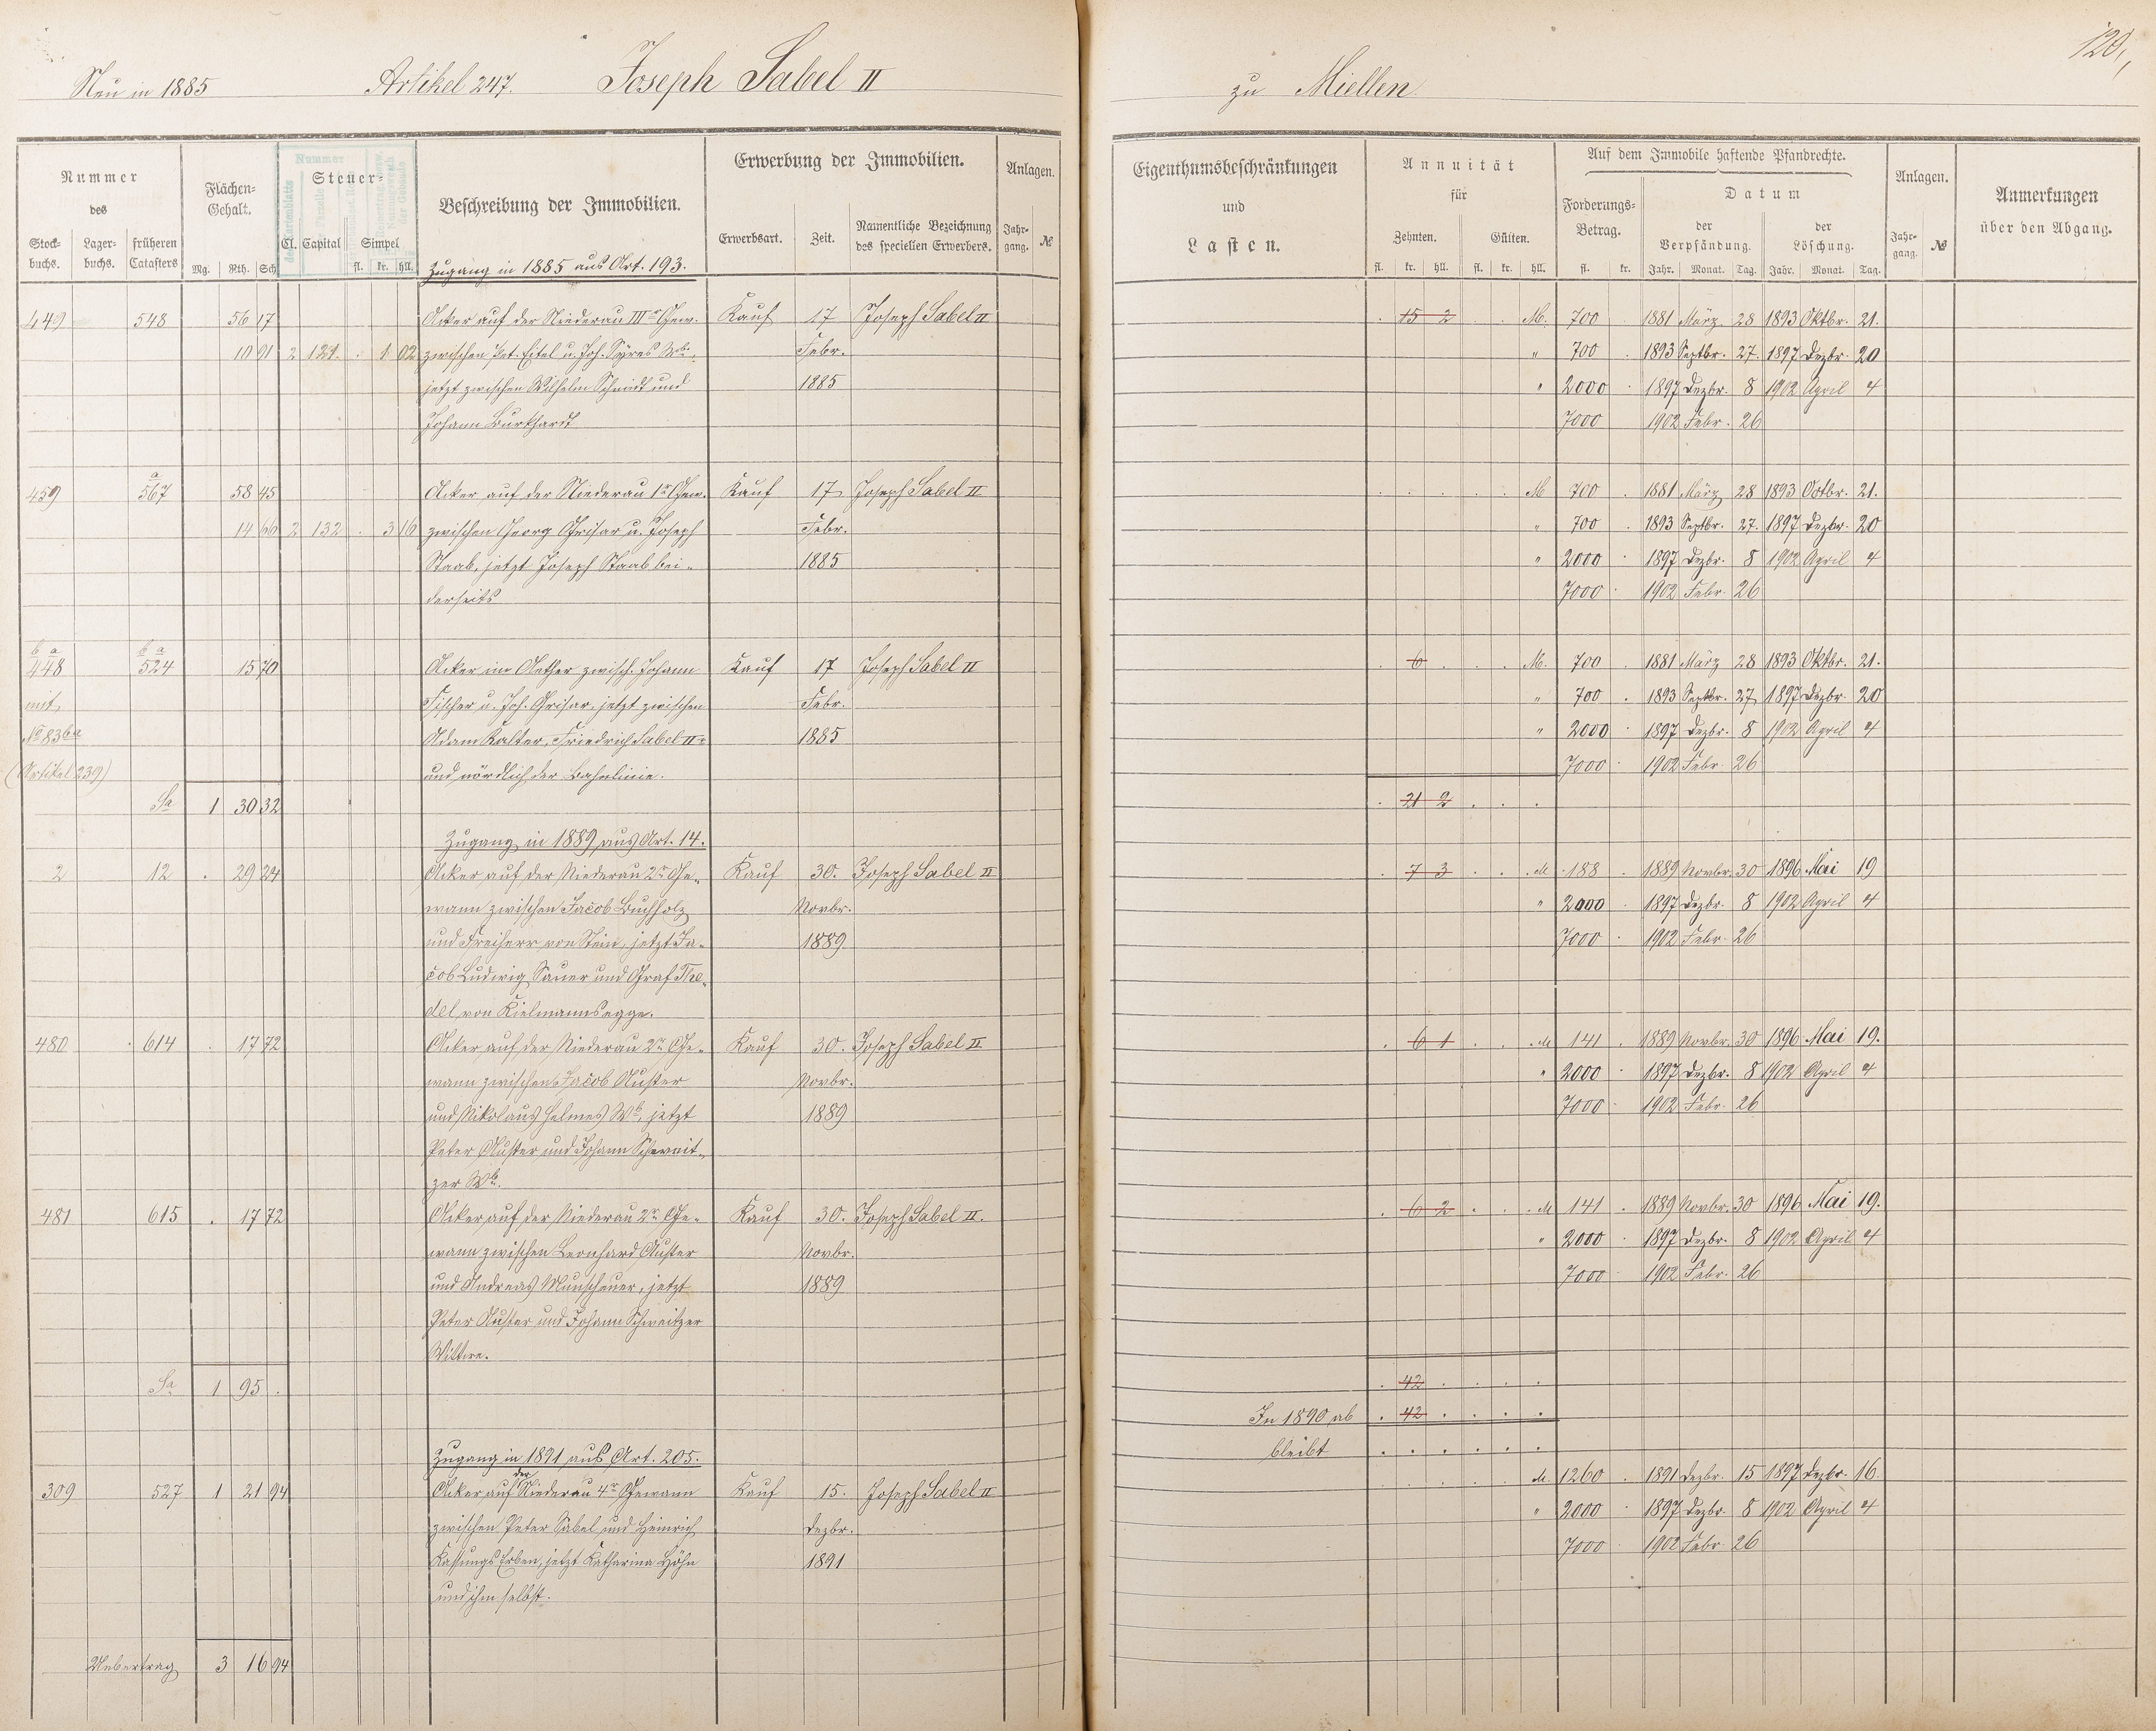 Neu in 1885 Artikel 247. Joseph Sabel II
zu Miellen
120,
Nummer des
Flächen-Gehalt.
Steuer-
Beschreibung der Immobilien.
Erwerbung der Immobilien.
Anlagen.
Stockbuchs. Lagerbuchs. früheren Catasters Mg. Rth. Sch Cl. Capital Simpel fl. kr. hll.
Erwerbsart. Zeit. Namentliche Bezeichnung des speciellen Erwerbers. Jahrgang. №
Zugang in 1885 aus Art. 193.
449 548 56 17 Acker auf der Niederau IIIr Gew. Kauf 17 Joseph Sabel II
10 91 2 121 . 1 02 zwischen Pet. Eitel u. Joh. Syres Wb. Febr.
jetzt zwischen Wilhelm Schmidt und 1885
Johann Burkhardt
459 a 567 58 45 Acker auf der Niederau 1r Gew. Kauf 17 Joseph Sabel II
14 60 2 132 . 3 16 zwischen Georg Grisar u. Joseph Febr.
Staab, jetzt Joseph Staab bei- 1885
derseits
b a b a
448 524 15 70 Acker im Aether zwisch. Johann Kauf 17 Joseph Sabel II
mit Fischer u. Joh. Grisar, jetzt zwischen Febr.
№ 836a Adam Kalter, Friedrich Sabel IIr 1885
(Artikel 239) und nördlich der Bahnlinie.
Sa 1 30 32
Zugang in 1889 aus Art. 14.
2 12 . 29 24 Acker auf der Niederau 2r Ge- Kauf 30. Joseph Sabel II
wann zwischen Jacob Buchholz Novbr.
und Freiherr von Stein, jetzt Ja- 1889
cob Ludwig Sauer und Graf The-
del von Kielmannsegge.
480 614 . 17 72 Acker auf der Niederau 2r Ge- Kauf 30. Joseph Sabel II
wann zwischen Jacob Auster Novbr.
und Nikolaus Helmes Wb, jetzt 1889
Peter Auster und Johann Schweit-
zer Wb.
481 615 . 17 72 Acker auf der Niederau 2r Ge- Kauf 30. Joseph Sabel II.
wann zwischen Leonhard Auster Novbr.
und Andreas Munscheuer, jetzt 1889
Peter Auster und Johann Schweitzer
Wittwe.
Sa 1 95 .
Zugang in 1891 aus Art. 205.
309 527 1 21 94 Acker auf der Niederau 4r Gewann Kauf 15. Joseph Sabel II
zwischen Peter Sabel und Heinrich Dezbr.
Erben, jetzt Katharina Höhn 1891
und ihm selbst.
Uebertrag 3 16 94
Eigenthumsbeschränkungen und Lasten.
Annuität für
Zehnten. Gülten.
fl. kr. hll. fl. kr. hll.
Auf dem Immobile haftende Pfandrechte.
Forderungs-Betrag. fl. kr.
Datum
der Verpfändung. der Löschung.
Jahr. Monat. Tag. Jahr. Monat. Tag.
Anlagen. Jahrgang. №
Anmerkungen über den Abgang.
. 15 2 . . M. 700 . 1881 März 28 1893 Oktbr. 21.
" 700 . 1893 Septbr. 27. 1897 Dezbr. 20
" 2000 . 1897 Dezbr. 8 1902 April 4
7000 1902 Febr. 26
. . . . . M 700 . 1881 März 28 1893 Octbr. 21.
" 700 . 1893 Septbr. 27. 1897 Dezbr. 20
" 2000 . 1897 Dezbr. 8 1902 April 4
7000 . 1902 Febr. 26
. 6 . . . M. 700 . 1881 März 28 1893 Oktbr. 21.
" 700 . 1893 Septbr. 27 1897 Dezbr. 20
" 2000 . 1897 Dezbr. 8 1902 April 4
7000 . 1902 Febr. 26
. 21 2 . . .
. 7 3 . . . M 188 . 1889 Novbr. 30 1896 Mai 19
" 2000 . 1897 Dezbr. 8 1902 April 4
7000 . 1902 Febr. 26
. 6 1 . . . M 141 . 1889 Novbr. 30 1896 Mai 19.
" 2000 . 1897 Dezbr. 8 1902 April 4
7000 . 1902 Febr. 26
. 6 2 . . . M 141 . 1889 Novbr. 30 1896 Mai 19.
" 2000 . 1897 Dezbr. 8 1902 April 4
7000 . 1902 Febr. 26
. 42 . . . .
In 1890 ab . 42 . . . .
bleibt . . . . . .
M. 1260 . 1891 Dezbr. 15 1897 Dezbr. 16.
" 2000 . 1897 Dezbr. 8 1902 April 4
7000 . 1902 Febr. 26